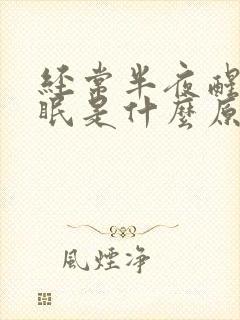 經常半夜醒
眠是什麼原
風煙净